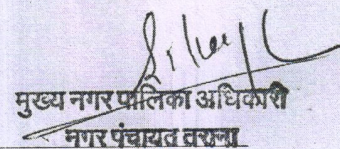 मुख्य नगर पालिका अधिकारी
नगर पंचायत तराना